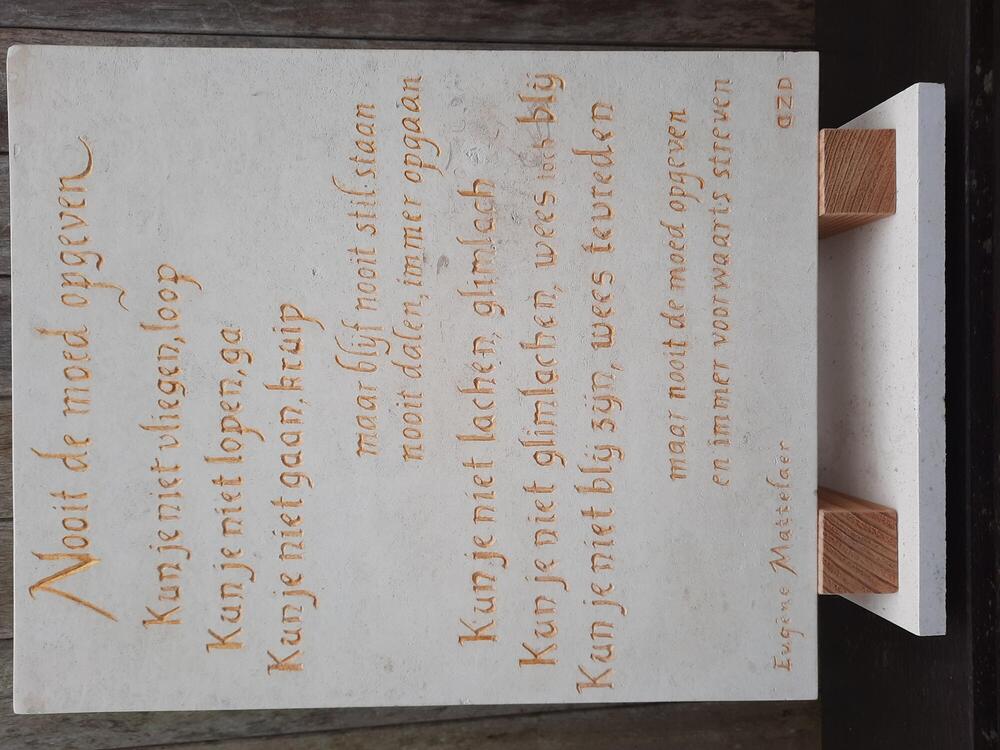 Nooit de moed opgeven
Kun je niet vliegen, loop
Kun je niet lopen, ga
Kun je niet gaan, kruip
maar blijf nooit stil staan
nooit dalen, immer opgaan
Kun je niet lachen, glimlach
Kun je niet glimlachen, wees toch blij
Kun je niet blij zijn, wees tevreden
maar nooit de moed opgeven
en immer voorwaarts streven
Eugene Mattelaer